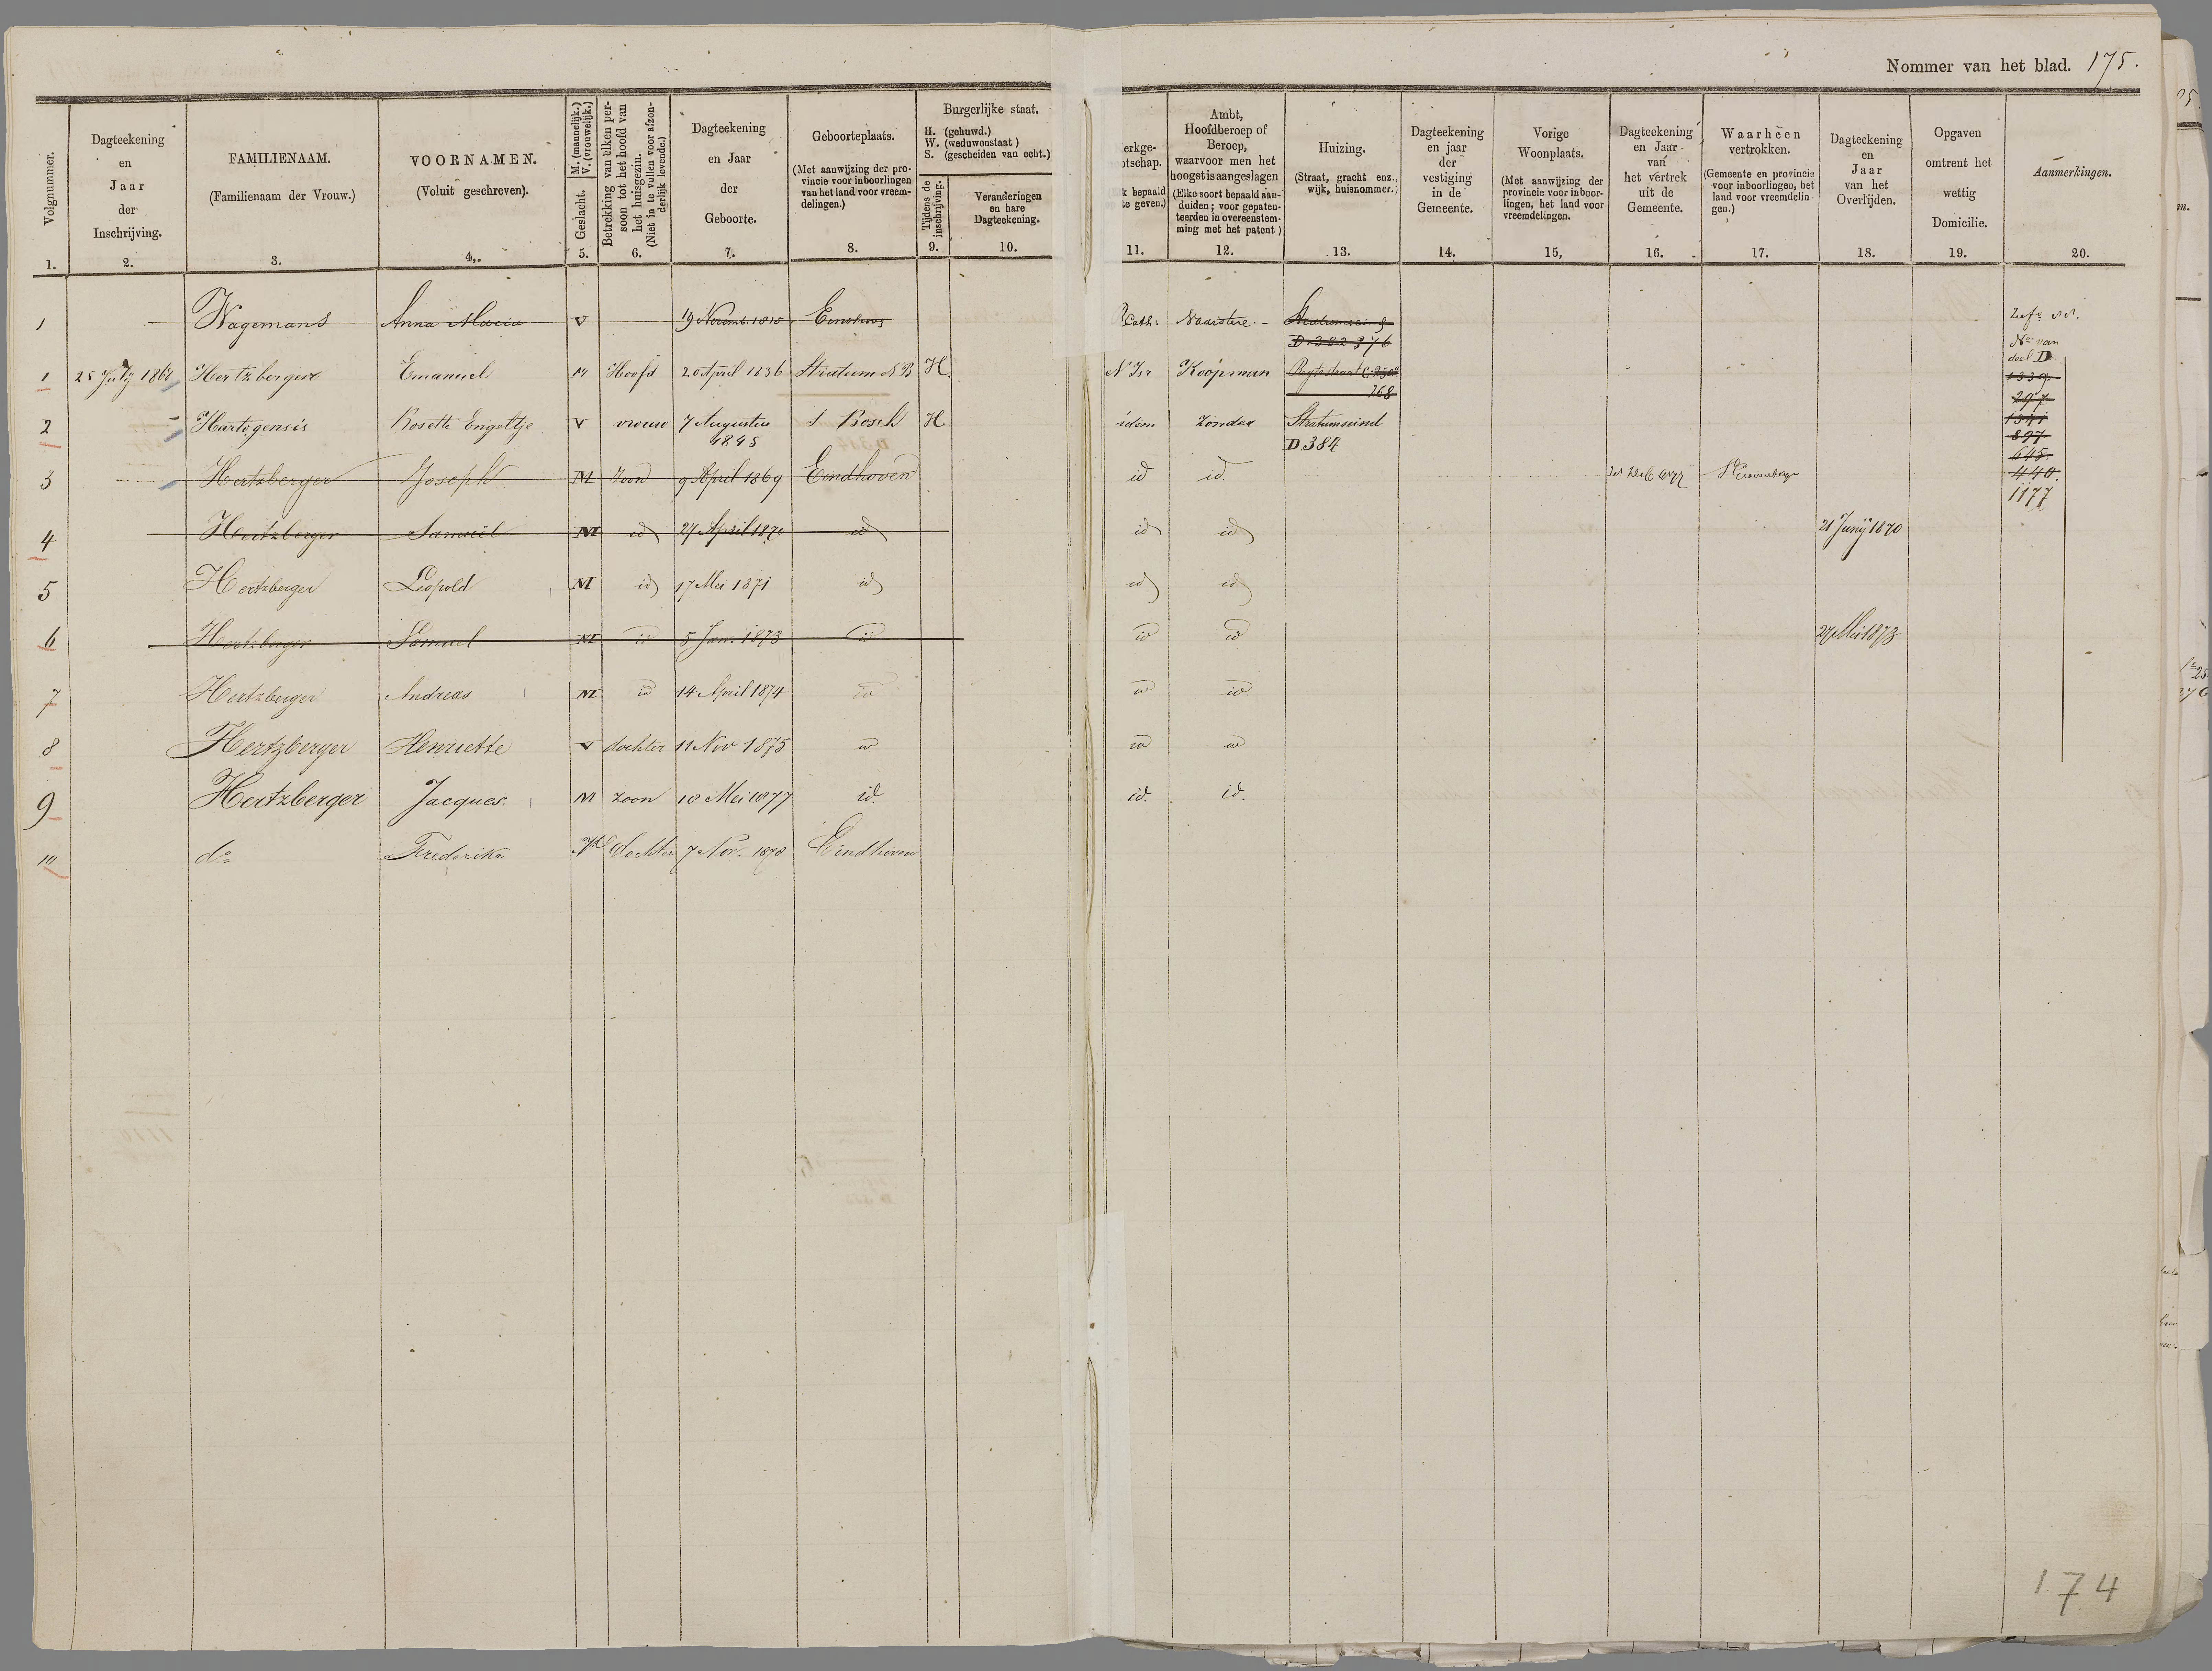 Nommer van het blad. 175.
Volgnummer.
Dagteekening en Jaar der Inschrijving.
FAMILIENAAM. (Familienaam der Vrouw.)
VOORNAMEN. (Voluit geschreven).
Geslacht. M. (mannelijk.) V. (vrouwelijk.)
Betrekking van elken persoon tot het hoofd van het huisgezin. (Niet in te vullen voor afzonderlijk levende.)
Dagteekening en Jaar der Geboorte.
Geboorteplaats. (Met aanwijzing der provincie voor inboorlingen van het land voor vreemdelingen.)
Burgerlijke staat. H. (gehuwd.) W. (weduwenstaat) S. (gescheiden van echt.)
Tijdens de inschrijving.
Veranderingen en hare Dagteekening.
erkge-
otschap.
k bepaald
te geven.)
Ambt, Hoofdberoep of Beroep, waarvoor men het hoogst is aangeslagen (Elke soort bepaald aanduiden; voor gepatenteerden in overeenstemming met het patent)
Huizing. (Straat, gracht enz., wijk, huisnommer.)
Dagteekening en jaar der vestiging in de Gemeente.
Vorige Woonplaats. (Met aanwijzing der provincie voor inboorlingen, het land voor vreemdelingen.
Dagteekening en Jaar van het vertrek uit de Gemeente.
Waarheen vertrokken. (Gemeente en provincie voor inboorlingen, het land voor vreemdelingen.)
Dagteekening en Jaar van het Overlijden.
Opgaven omtrent het wettig Domicilie.
Aanmerkingen.
1. 2. 3. 4. 5. 6. 7. 8. 9. 10. 11. 12. 13. 14. 15, 16. 17. 18. 19. 20.
1 Wagemans Anna Maria V 19 Novemb. Cath: Naaistere.
D 342 376
No van
deel D
1 25 July 1868 Hertzberger Emanuel M Hoofd 20 April 1836 Stratum NB H. N Isr Koopman
268
1339.
297
2 Hartogensis Rosette Engeltje V vrouw 7 Augustus 1845 s Bosch H idem Zonder Stratumseind
D 384
897
645.
3 Hertzberger Joseph M Zoon 9 April 1869 Eindhoven id id.
440.
1177
4 Hertzberger Samuël M id 27 April 1870 id id id 21 Junij 1870
5 Hertzberger Leopold M id 17 Mei 1871 id id id
6 Hertzberger Samuel M id 5 Jan. 1873 id id id 27 Mei 1873
7 Hertzberger Andreas M id 14 April 1874 id id id.
8 Hertzberger Henriette V dochter 11 Nov 1875 id id id
9 Hertzberger Jacques. M zoon 18 Mei 1877 id. id. id.
10 do Frederika Vl Dochter 7 Nov. 1878 Eindhoven
174